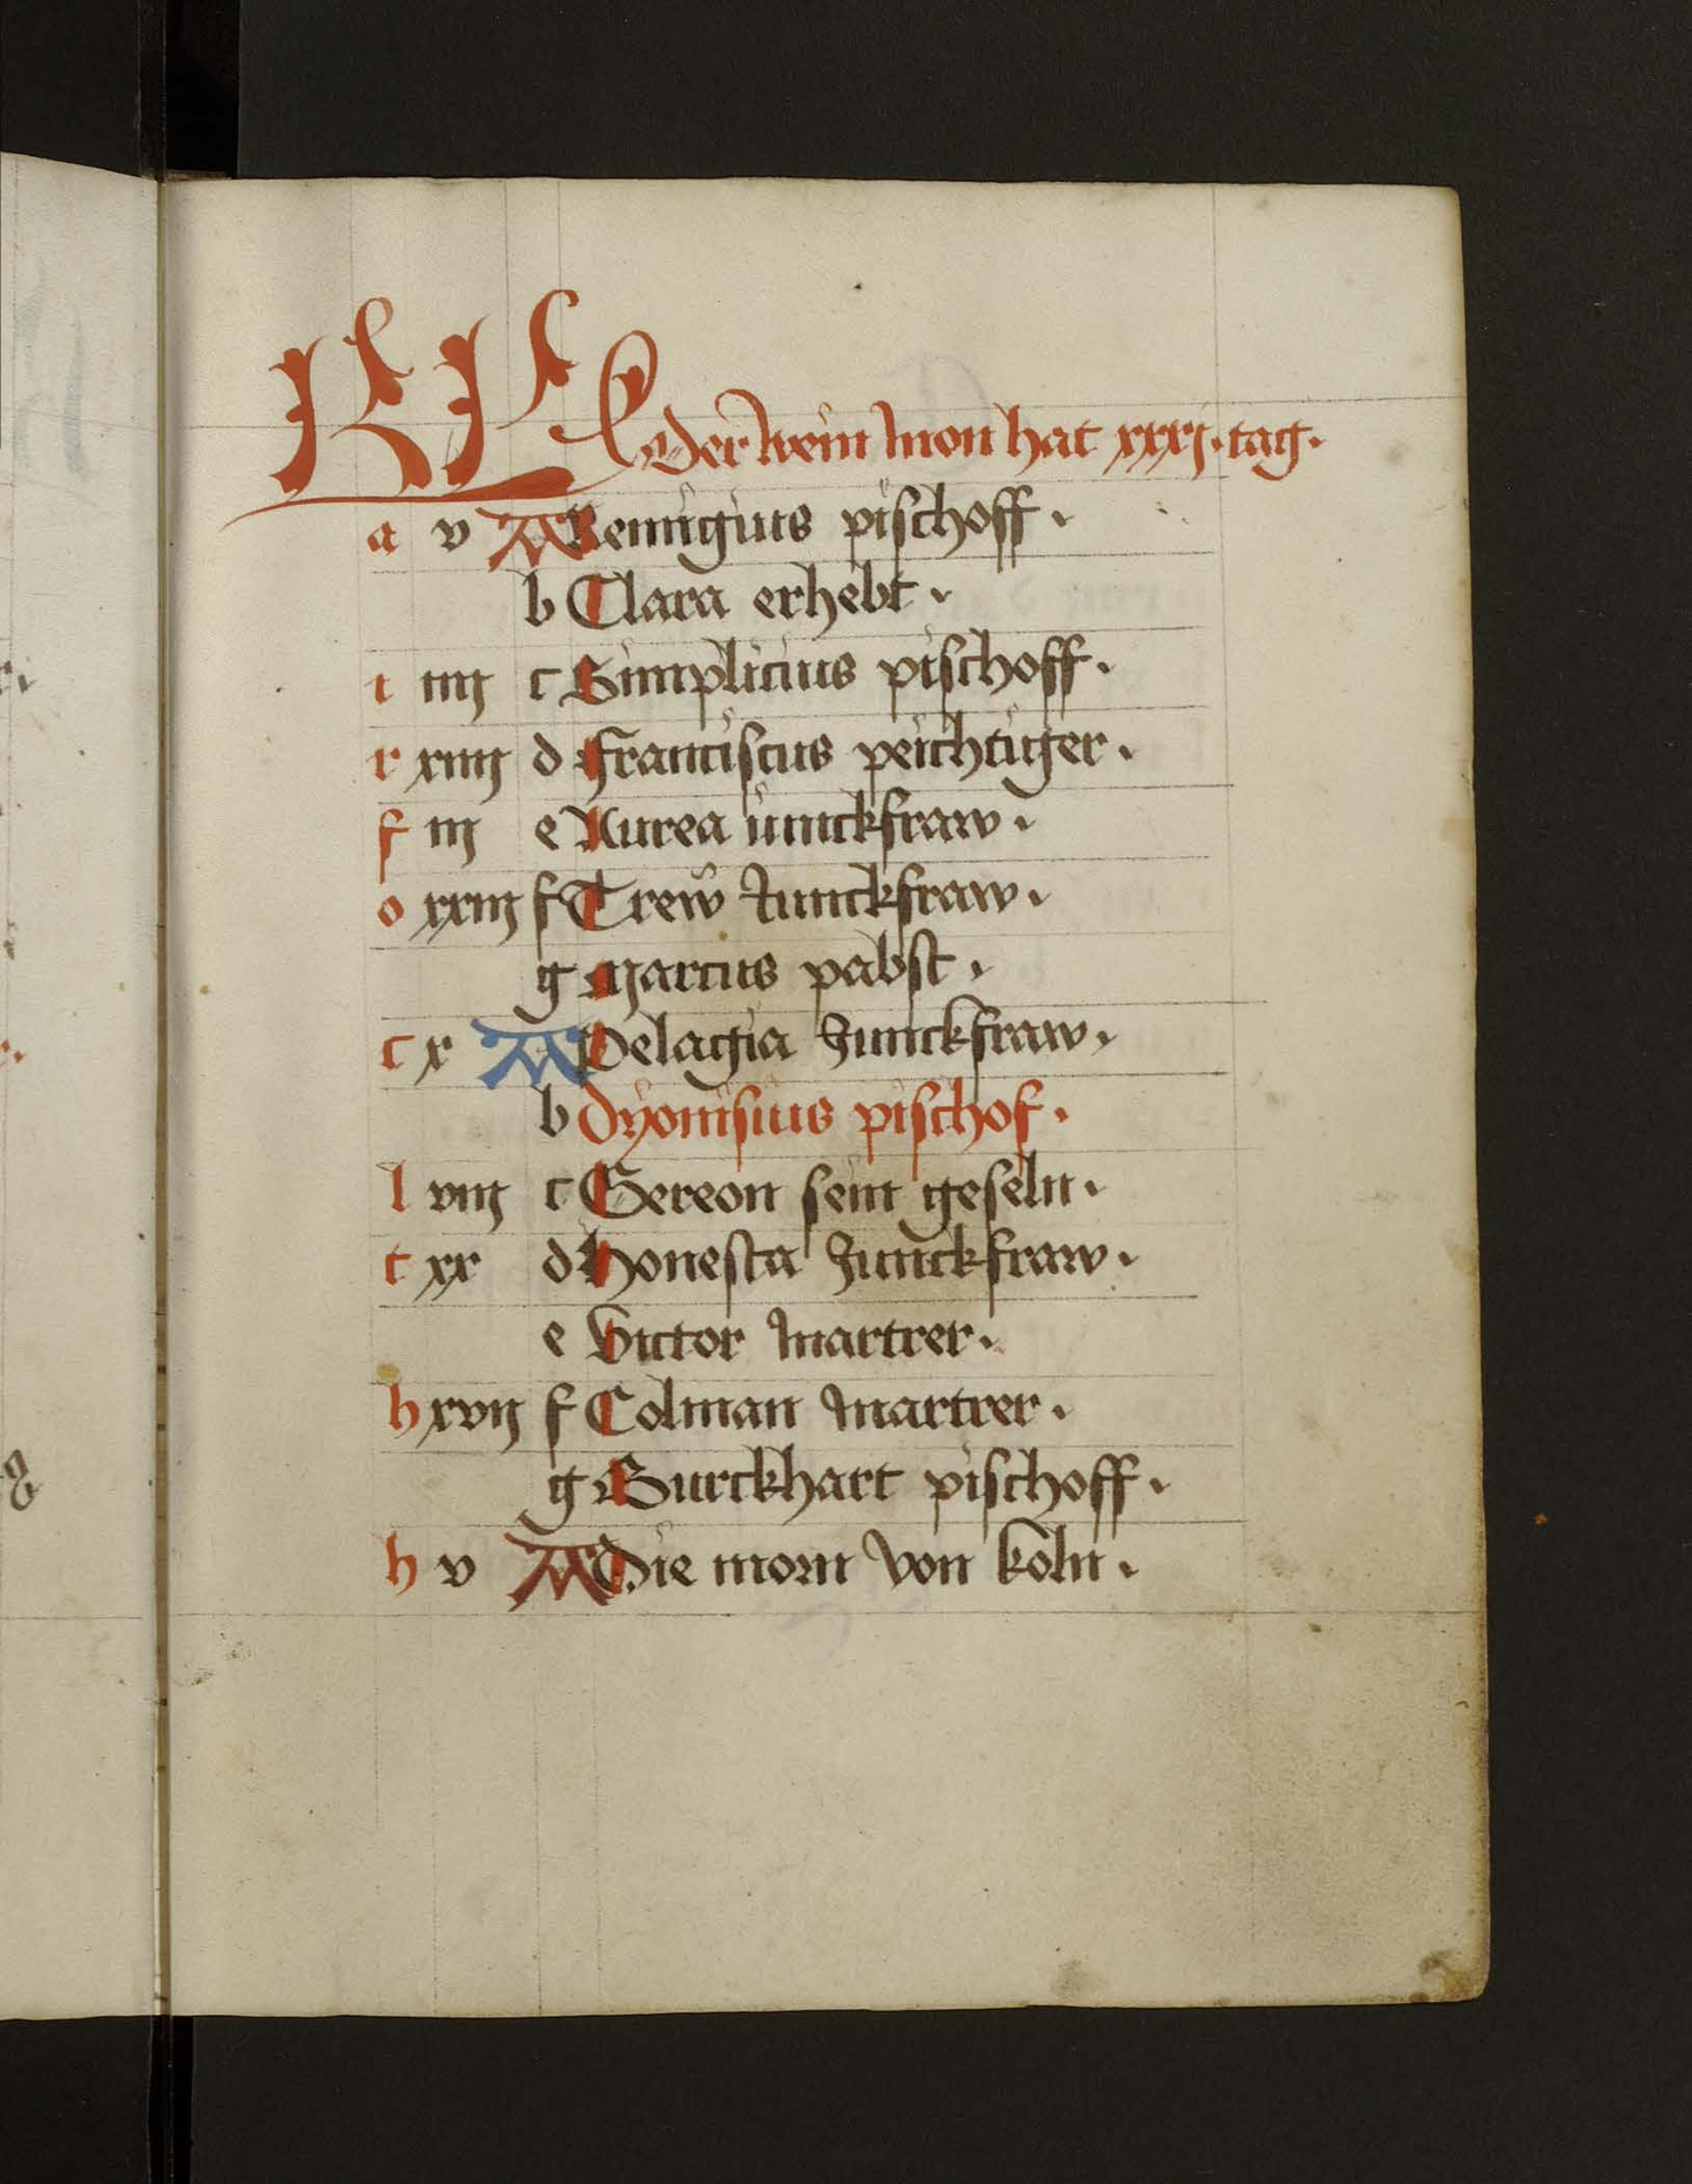 KL Der wein mon hat xxxj. tag.
a v A Remigius pischoff.
b Clara erhebt.
i iiij c Simplicius pischoff.
r xiiij d Franciscus peichtiger.
f iij e Aurea iunckfraw.
o xxiij f Trew Junckfraw.
g Marcus pabst.
c x A Pelagia Junckfraw.
b Dyonisius pischof.
l viij c Gereon sein geseln.
t xx d Honesta Junckfraw.
e Victor Martrer.
h xvij f Colman Martrer.
g Burckhart pischoff.
h v A Die morn von koln.